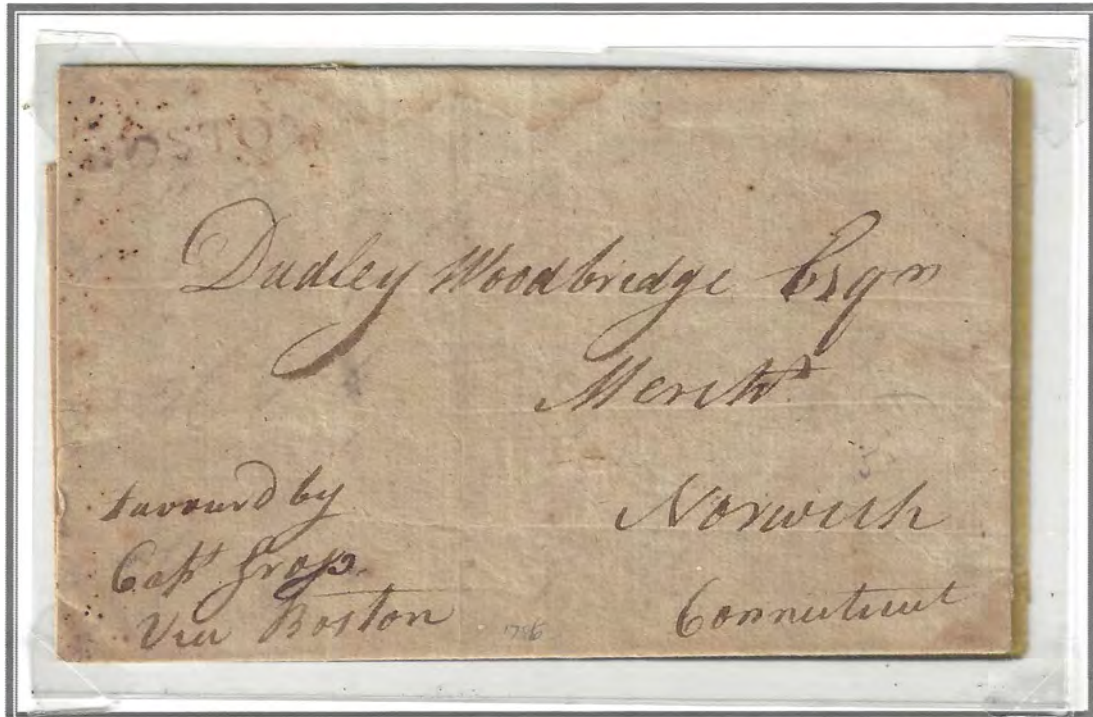 BOSTON
Dudley Woodbridge Esqr
Mercht
Norwich
Connecticut
favourd by
Capt
Via Boston